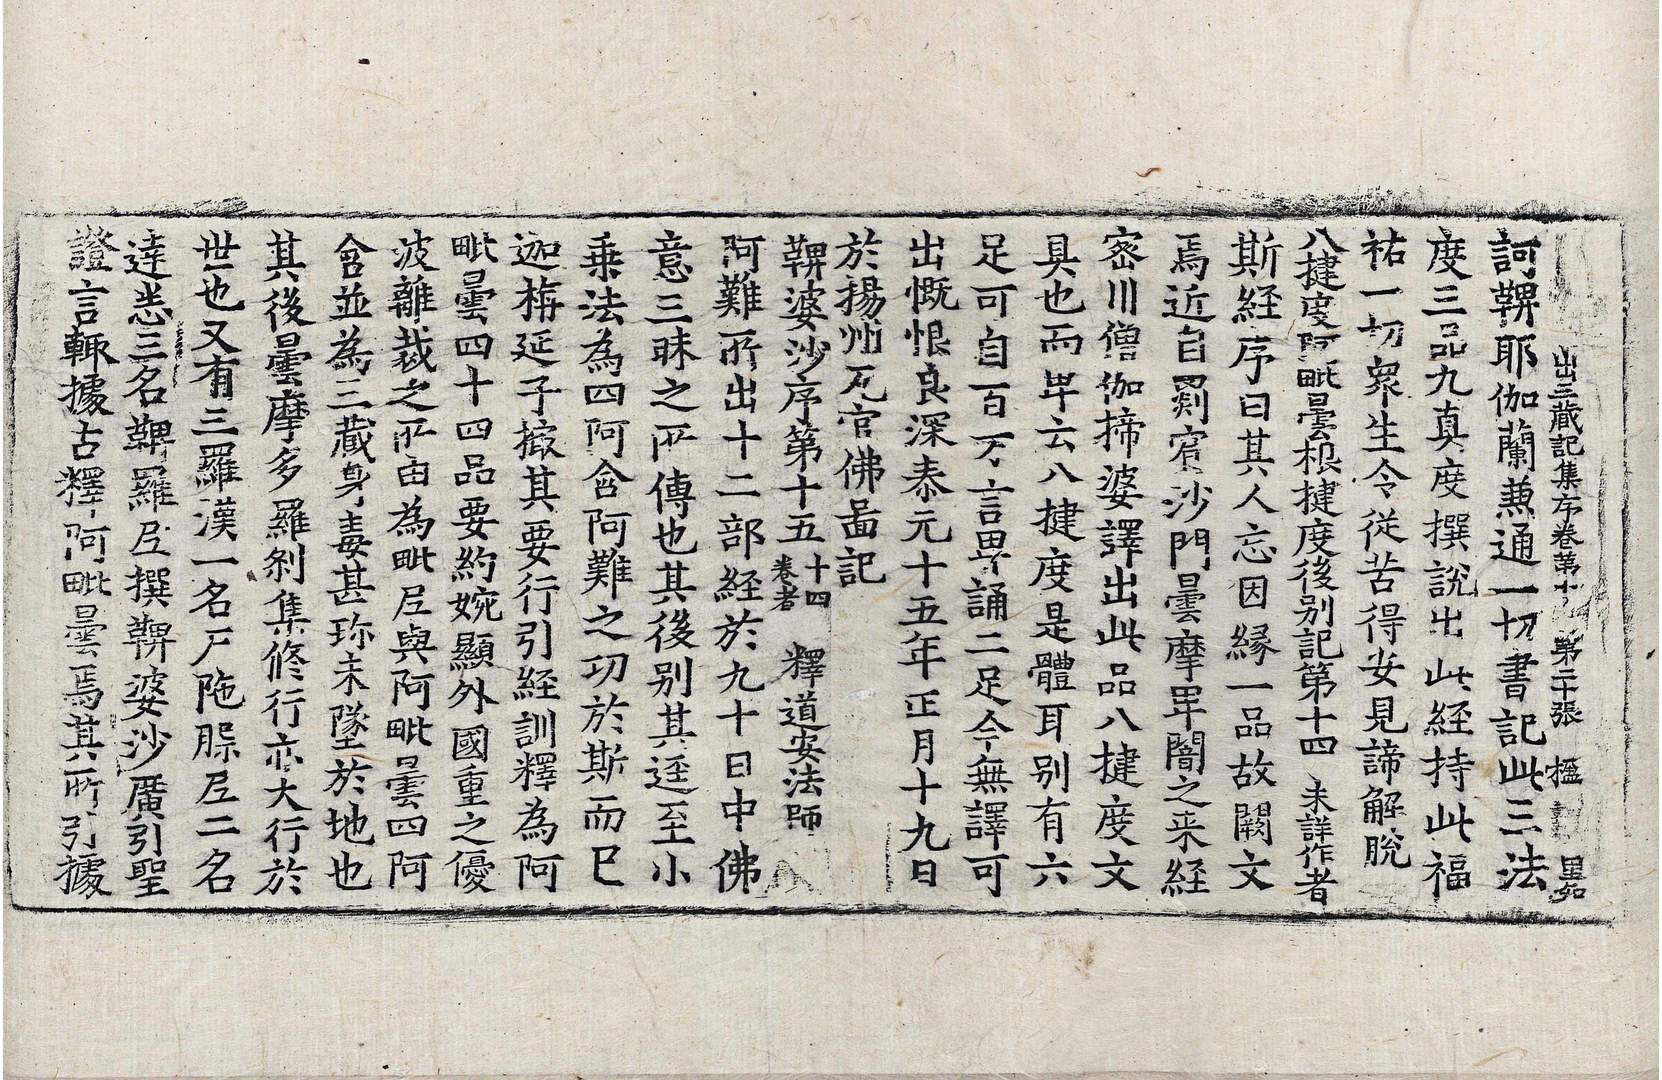 出三藏記集序卷第十 第二十張 楹
訶鞞耶伽蘭兼通一切書記此三法
度三品九真度撰說出此経持此福
祐一切衆生令従苦得安見諦解脫
八揵度阿毗曇根揵度後别記第十四 未詳作者
斯経序曰其人忘因縁一品故闕文
焉近自罽賔沙門曇摩卑闇之来経
宻川僧伽揥婆譯出此品八揵度文
具也而卑云八揵度是體耳别有六
足可自百万言卑誦二足今無譯可
出慨恨良深泰元十五年正月十九日
於揚州瓦官佛啚記
鞞婆沙序第十五 十四卷者 釋道安法師
阿難所出十二部経於九十日中佛
意三昧之所傳也其後别其逕至小
乗法為四阿含阿難之功於斯而已
迦栴延子撮其要行引経訓釋為阿
毗曇四十四品要約婉顯外國重之優
波離裁之所由為毗尼與阿毗曇四阿
含並為三藏身毒甚珎未墜於地也
其後曇摩多羅刹集修行亦大行於
世也又有三羅漢一名尸陁槃尼二名
逹悉三名鞞羅尼撰鞞婆沙廣引聖
證言輙據古釋阿毗曇焉其所引據